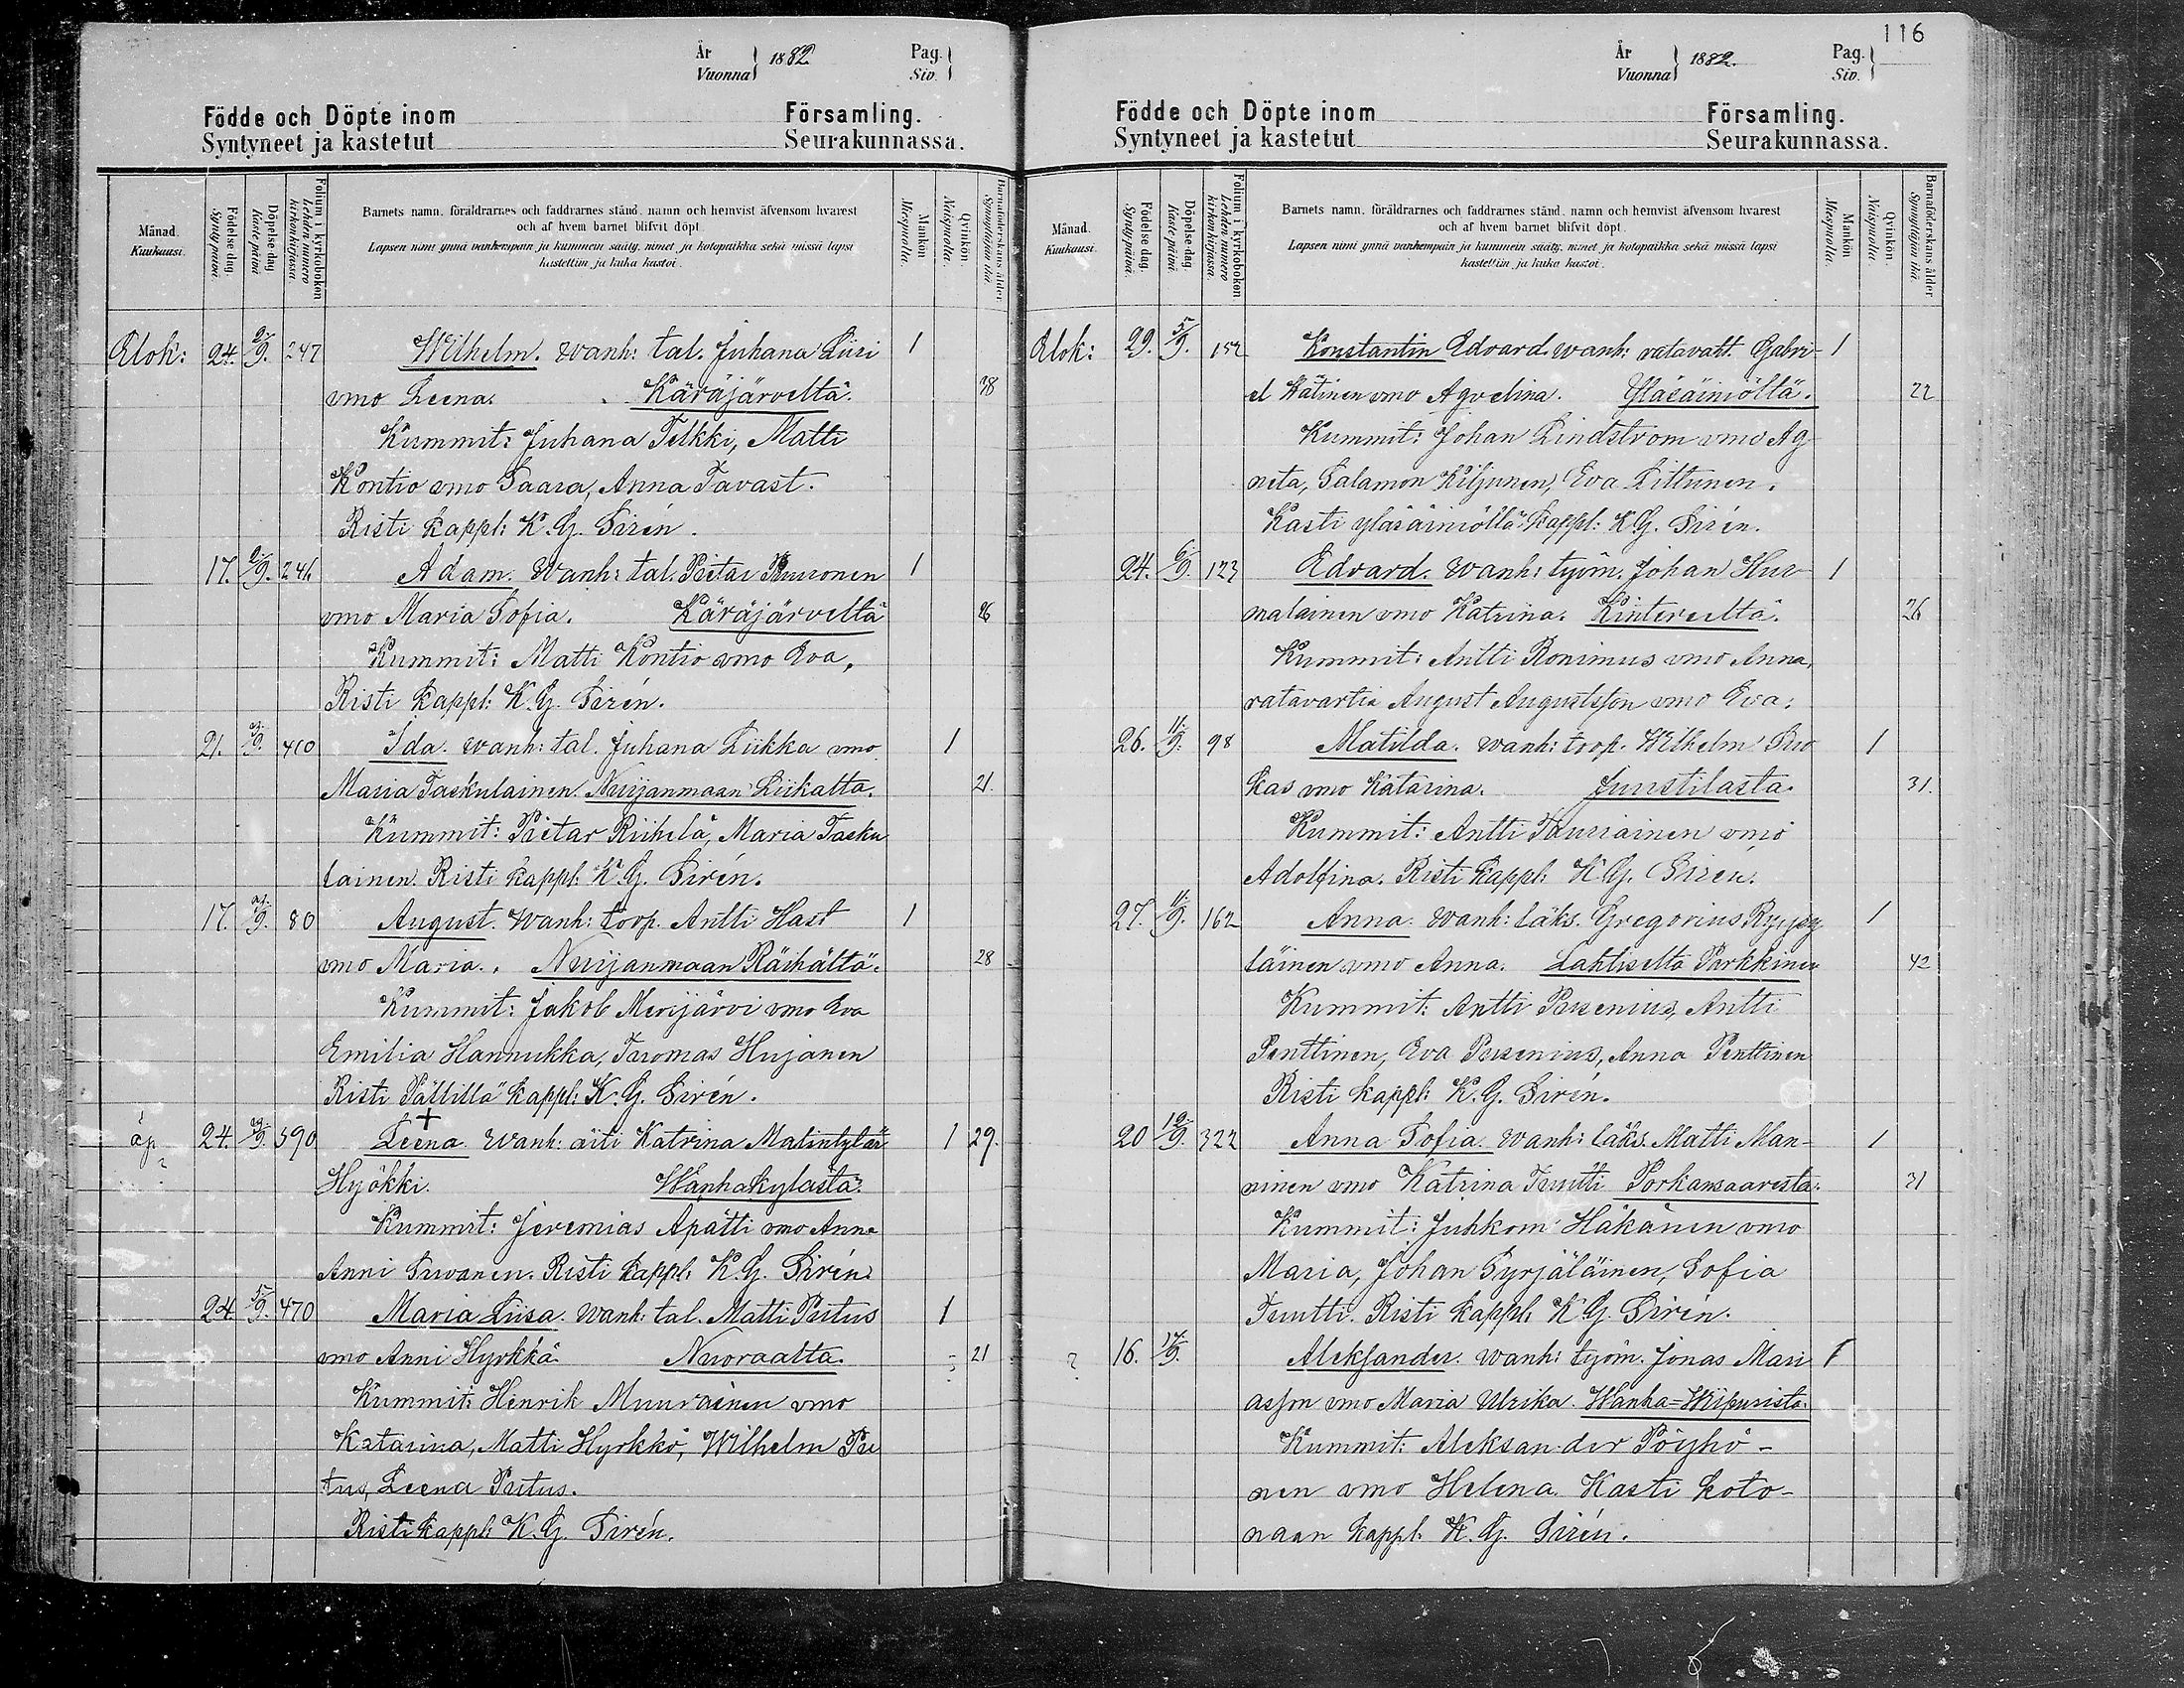 116
År
Vuonna
1882.
Pag.
Siv.
Födde och Döpte inom Församling.
Syntyneet ja kastetut Seurakunnassa.
Månad.
Kuukausi.
Födelse dag.
Synty päivä.
Döpelse dag
Kaste päivä
Folium i kyrkoboken
Lehden numero kirkonkirjassa.
Barnets namn, föräldrarnes och faddrarnes stånd, namn och hemvist äfvensom hvarest
och af hvem barnet blifvit döpt.
Lapsen nimi ynnä vanhempain ja kummein sääty, nimet ja kotopaikka sekä missä lapsi
kastettiin ja kuka kastoi.
Mankön
Miespuolla.
Qvinkön.
Naispuolla.
Barnaföderskans ålder.
Synnyttäjän ikä.
Elok: 24. 2/9. 247 Wilhelm. Wanh: tal. Juhana Liiri 1
vmo Leena. Käräjärveltä. 38
Kummit: Juhana Telkki, Matti
Kontio vmo Saara, Anna Tavast.
Risti kappl: K. G. Sirén.
17. 2/9. 246 Adam. Wanh: tal. Pietar 1
vmo Maria Sofia. Käräjärveltä
Kummit: Matti Kontio vmo Eva,
Risti kappl: K. G. Sirén.
21. 410 Ida. Wanh: tal. Juhana Liikka vmo 1
Maria Taskulainen. Nuijanmaan Liikalta. 21.
Kummit: Pietar Riihelä, Maria Tasku
lainen. Risti kappl: K. G. Sirén.
17. 80 August. Wanh: torp. Antti Hast 1
vmo Maria. Nuijanmaan Räihältä. 28
Kummit: Jakob Merijärvi vmo Eva
Emilia Hannukka, Tuomas Hujanen
Risti Pällillä kappl: K. G. Sirén.
äp. 24. 590 Leena Wanh: äiti Katrina Matintytär 1 29.
Hyökki. Wanhakylästä.
Kummit: Jeremias Apatti vmo Anna
Anni Suvanen. Risti kappl: K. G. Sirén.
24. 5/9. 470 Maria Liisa. Wanh: tal. Matti Pietus 1
vmo Anni Hyrkkä. Nuoraalta. 21
Kummit: Henrik Muurainen vmo
Katarina, Matti Hyrkkö, Wilhelm Pie
tus, Leena Pietus.
Risti kappl: K. G. Sirén.
År
Vuonna
1882.
Pag.
Siv.
Födde och Döpte inom Församling.
Syntyneet ja kastetut Seurakunnassa.
Månad.
Kuukausi.
Födelse dag.
Synty päivä.
Döpelse dag.
Kaste päivä.
Folium i kyrkoboken.
Lehden numero kirkonkirjassa.
Barnets namn, föräldrarnes och faddrarnes stånd, namn och hemvist äfvensom hvarest
och af hvem barnet blifvit döpt.
Lapsen nimi ynnä vanhempain ja kummein sääty, nimet ja kotopaikka sekä missä lapsi
kastettiin ja kuka kastoi.
Mankön
Miespuolla.
Qvinkön.
Naispuolla.
Barnaföderskans ålder
Synnyttäjän ikä.
Elok: 29. 5/9. 152 Konstantin Edvard. wanh: ratavatt. Gabri- 1
el Kätinen vmo Agvelina. Yläsäiniöltä. 22
Kummit: Johan Lindstrom vmo Ag
neta, Salamon Kiljunen, Eva Littunen.
Kasti yläsäiniöllä kappl: K. G. Sirén.
24. 6/9. 123 Edvard. Wanh: työm. Johan Hur 1
malainen vmo Katrina. Kintereeltä. 26
Kummit: Antti Ronimus vmo Anna,
ratavartia August Augustsson vmo Eva.
26. 11/9. 98 Matilda. Wanh: torp. Wilhelm Suo 1
kas vmo Katarina. Juustilasta. 31.
Kummit: Antti Tauriainen vmo
Adolfina. Risti kappl. K. G. Sirén.
27. 11/9. 162 Anna. Wanh: läks. Gregorius 1
läinen vmo Anna. Lahtiselta Parkkinen 42
Kummit: Antti Pursenius, Antti
Penttinen, Eva Pursenius, Anna Penttinen
Risti kappl: K. G. Sirén.
20 12/9. 322 Anna Sofia. Wanh: läks. Matti Man- 1
ninen vmo Katrina Tuutti Porkansaaresta. 31
Kummit: Juhkom Häkänen vmo
Maria, Johan Pyrjäläinen, Sofia
Tuutti. Risti kappl. K. G. Sirén.
? 16. 14/9. Aleksander. Wanh: työm. Jonas Mari 1
asson vmo Maria Ulrika. Wanha=Wiipurista.
Kummit: Aleksander Pöyhö-
nen vmo Helena. Kasti koto-
naan kappl. K. G. Sirén.